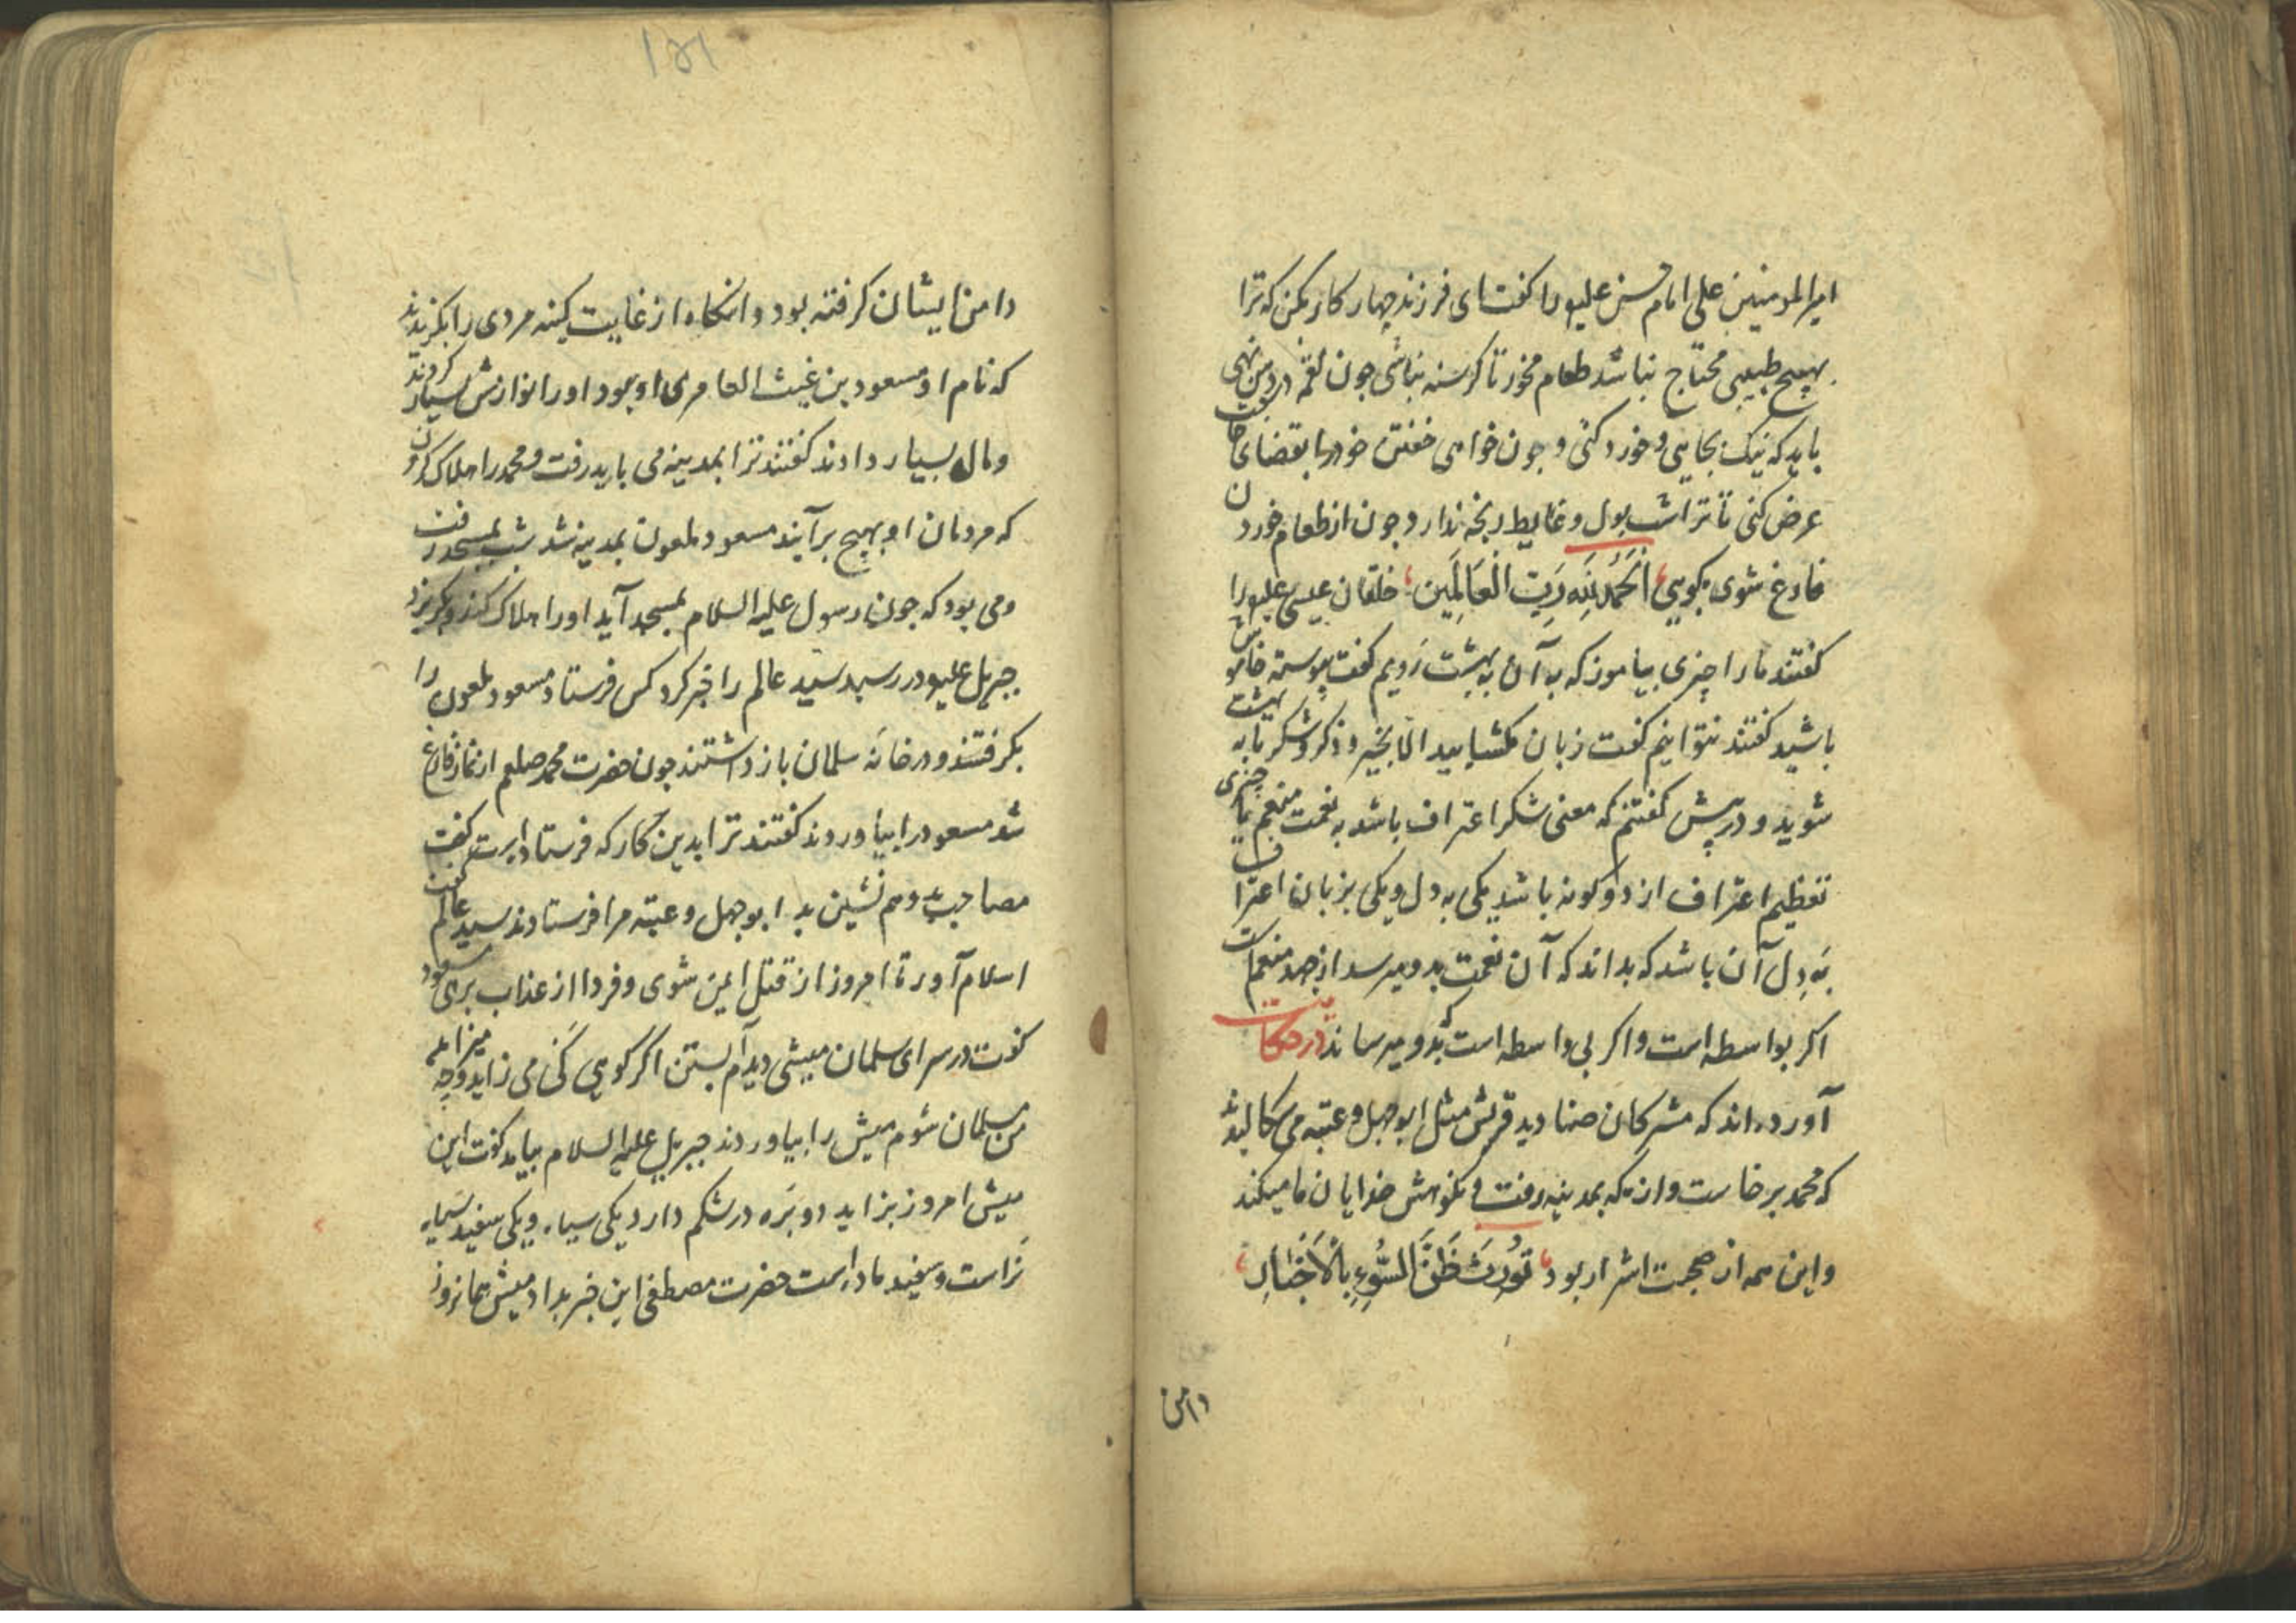 امیرالمومنین علی امام حسن علیو را کفت ای فرزند چهار کار بکن که ترا
بهیچ طبیبی محتاج نباشد طعام مخور تا کرسنه نباشی چون لقمه در دهن نهی
باید که نیک بخایی و خورد کنی و چون خواهی خفتن خود را بقضای حاجت
عرض کنی تا ترا شب بول و غایط رنجه ندارد و چون از طعام خوردن
فارغ شوی بکویی اَلْحَمْدُ لِلّٰهِ رَبِّ الْعَالَمِین خلقان عیسی علیو را
کفتند ما را چیزی بیاموز که به آن به بهشت رَویم کفت پیوسته خاموش
باشید کفتند نتوانیم کفت زبان مکشایید الا بخیر و ذکر و شکر تا به بهشت
شوید و در پیش کفتم که معنی شکر اعتراف باشد به نعمت منعم با چیزی
تعظیم اعتراف از دو کونه باشد یکی به دل و یکی بزبان اعتراف
بَه دِل آن باشد که بداند که آن نعمت بدو میرسد از جهد منعم است
اکر بواسطه است و اکر بی واسطه است که بدو میرساند در حکایت
آورده اند که مشرکان صنادید قریش مثل ابوجهل و عتبه می سکالیدند
که محمد برخاست و از مکه بمدینه رفت و نکوهش خدایان ما میکند
و این همه از صحبت اشرار بود تُورِثُ ظَنَّ السُّوءِ بِالْاَخْیَارِ
دامن
۱۵۱
دامن ایشان کرفته بود و انکاه از غایت کینه مردی را بکزیدند
که نام او مسعود بن غیث العامری او بود او را نوازش بسیار کردند
و مال بسیار دادند کفتند ترا بمدینه می باید رفت و محمد را هلاک کردن
که مردمان او بهیچ برآیند مسعود ملعون بمدینه شد شب بمسجد رفت
و می بود که چون رسول علیه السلام بمسجد آید او را هلاک کند و بکریزد
جبریل علیو در رسید سید عالم را خبر کرد کس فرستاد مسعود ملعون را
بکرفتند و در خانَه سلمان بازداشتند چون حضرت محمد صلعم از نماز فارغ
شد مسعود را بیاوردند کفتند ترا بدین کار که فرستاده است کفت
مصاحب بد و هم نشین بد ابوجهل و عتبه مرا فرستادند سید عالم کفت
اسلام آور تا امروز از قتل ایمن شوی و فردا از عذاب برهی مسعود
کفت در سرای سلمان میشی دیدم آبستن اکر کویی کَی می زاید و چه میزاید
من مسلمان شوم میش را بیاوردند جبریل علیه السلام بیامد کفت این
میش امروز بزاید دو بَره در شکم دارد یکی سیاه و یکی سفید سیاه
نَر است و سفید ماده است حضرت مصطفی این خبر بداد میش همانروز